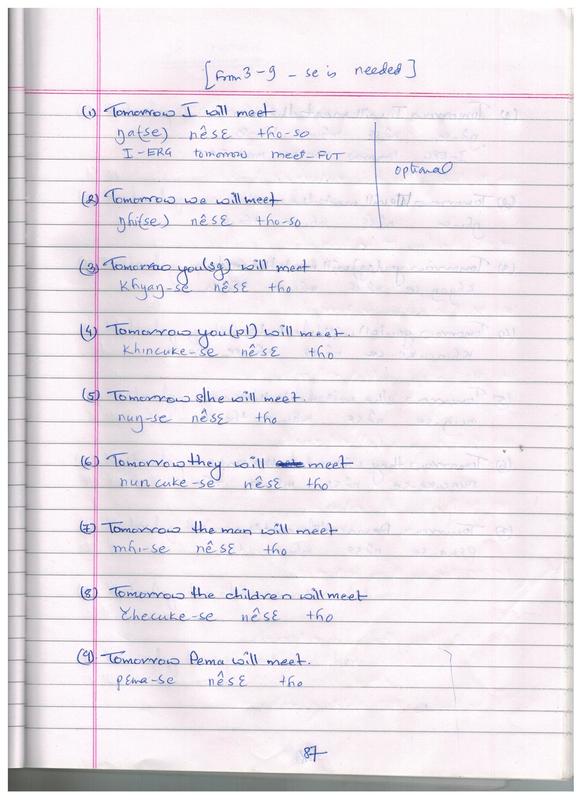 [from 3-9 - se is needed]
(1) Tomorrow I will meet
ŋa(se) nêsɛ tho-so
I-ERG tomorrow meet-FUT
optional
(2) Tomorrow we will meet
ŋhi(se) nêsɛ tho-so
(3) Tomorrow you(sg) will meet
Khyaŋ-se nêsɛ tho
(4) Tomorrow you(pl) will meet.
khincuke-se nêsɛ tho
(5) Tomorrow s/he will meet.
nuŋ-se nêsɛ tho
(6) Tomorrow they will meet
nuncuke-se nêsɛ tho
(7) Tomorrow the man will meet
mhi-se nêsɛ tho
(8) Tomorrow the children will meet
nêsɛ tho
(9) Tomorrow Pema will meet.
pɛma-se nêsɛ tho
87